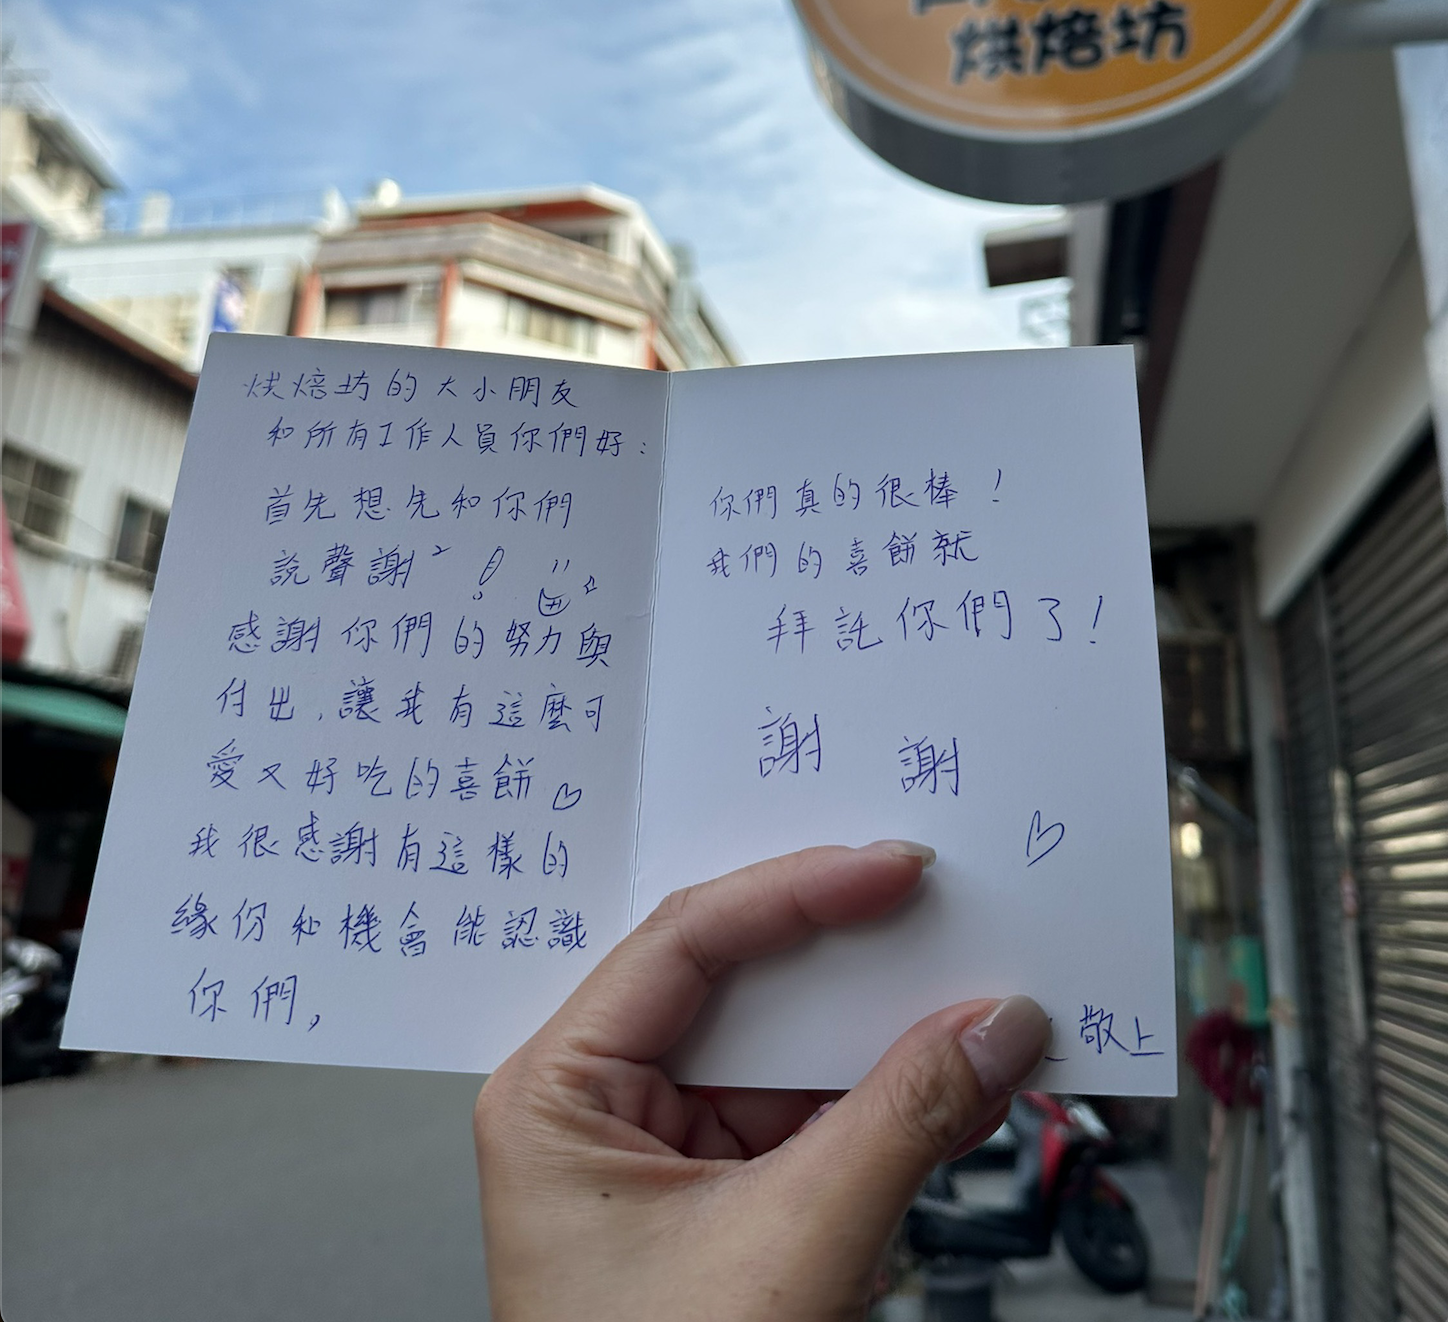 烘焙坊
烘焙坊的大小朋友
和所有工作人員你們好：
首先想先和你們
說聲謝²！
感謝你們的努力與
付出，讓我有這麼可
愛又好吃的喜餅♡
我很感謝有這樣的
緣份和機會能認識
你們，
你們真的很棒！
我們的喜餅就
拜託你們了！
謝謝
♡
敬上